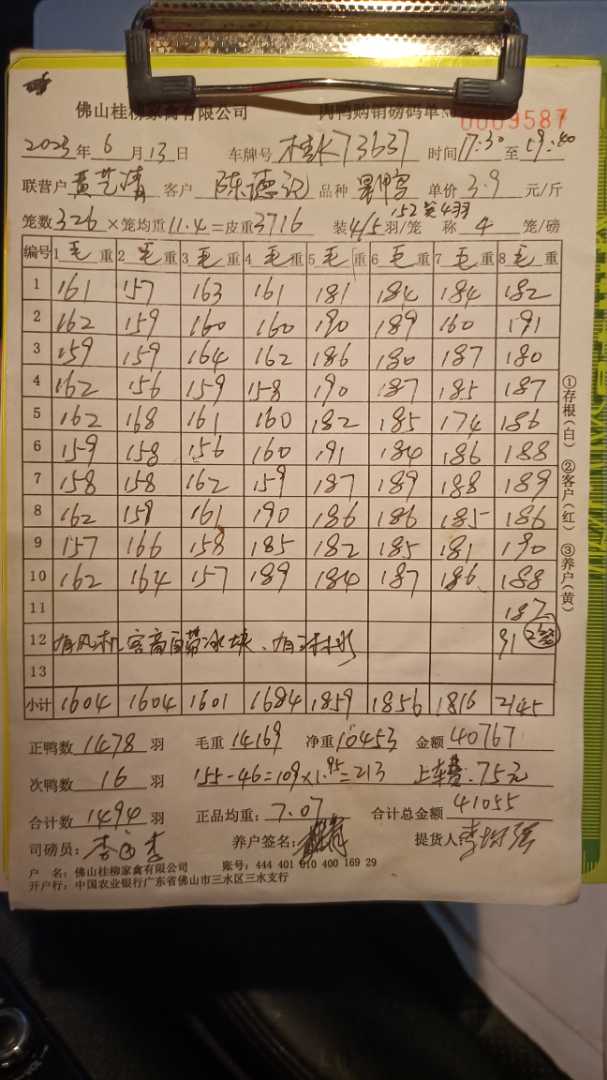 佛山桂柳家禽有限公司 肉鸭购销磅码单 № 0009587
2023年6月13日 车牌号 桂K73637 时间17:30至19:40
联营户 黄艺清 客户 陈德记 品种 单价3.9元/斤
152笼4羽
笼数326×笼均重11.4=皮重3716 装4/5羽/笼 称4笼/磅
编号 1毛重 2毛重 3毛重 4毛重 5毛重 6毛重 7毛重 8毛重
1 161 157 163 161 181 184 184 182
2 162 159 160 160 190 189 160 191
3 159 159 164 162 186 180 187 180
4 162 156 159 158 190 187 185 187
5 162 168 161 160 182 185 174 186
6 159 158 156 160 191 184 186 188
7 158 158 162 159 187 189 188 189
8 162 159 161 190 186 186 185 186
9 157 166 158 185 182 185 181 190
10 162 164 157 189 184 187 186 188
11 187
12 有风机 客商自带冰块、有 91 2笼
13
小计 1604 1604 1601 1684 1859 1856 1816 2145
正鸭数1478羽 毛重14169 净重10453 金额40767
次鸭数16羽 155-46=109×1.95=213 上车费:75元
合计数1494羽 正品均重:7.07 合计总金额41055
司磅员: 养户签名: 提货人:
户 名:佛山桂柳家禽有限公司 账号:444 401 010 400 169 29
开户行:中国农业银行广东省佛山市三水区三水支行
①存根(白) ②客户(红) ③养户(黄)